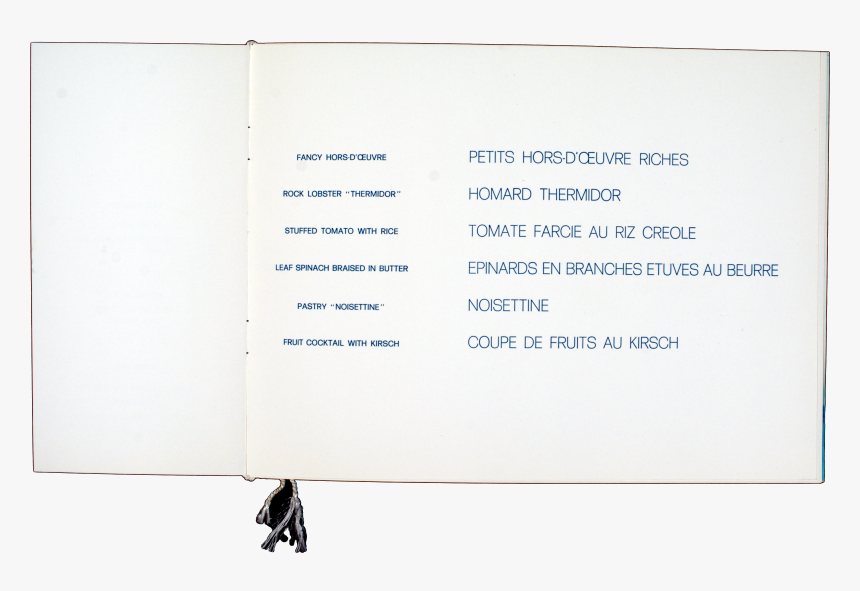 FANCY HORS-D'ŒUVRE
PETITS HORS-D'ŒUVRE RICHES
ROCK LOBSTER "THERMIDOR"
HOMARD THERMIDOR
STUFFED TOMATO WITH RICE
TOMATE FARCIE AU RIZ CREOLE
LEAF SPINACH BRAISED IN BUTTER
EPINARDS EN BRANCHES ETUVES AU BEURRE
PASTRY "NOISETTINE"
NOISETTINE
FRUIT COCKTAIL WITH KIRSCH
COUPE DE FRUITS AU KIRSCH